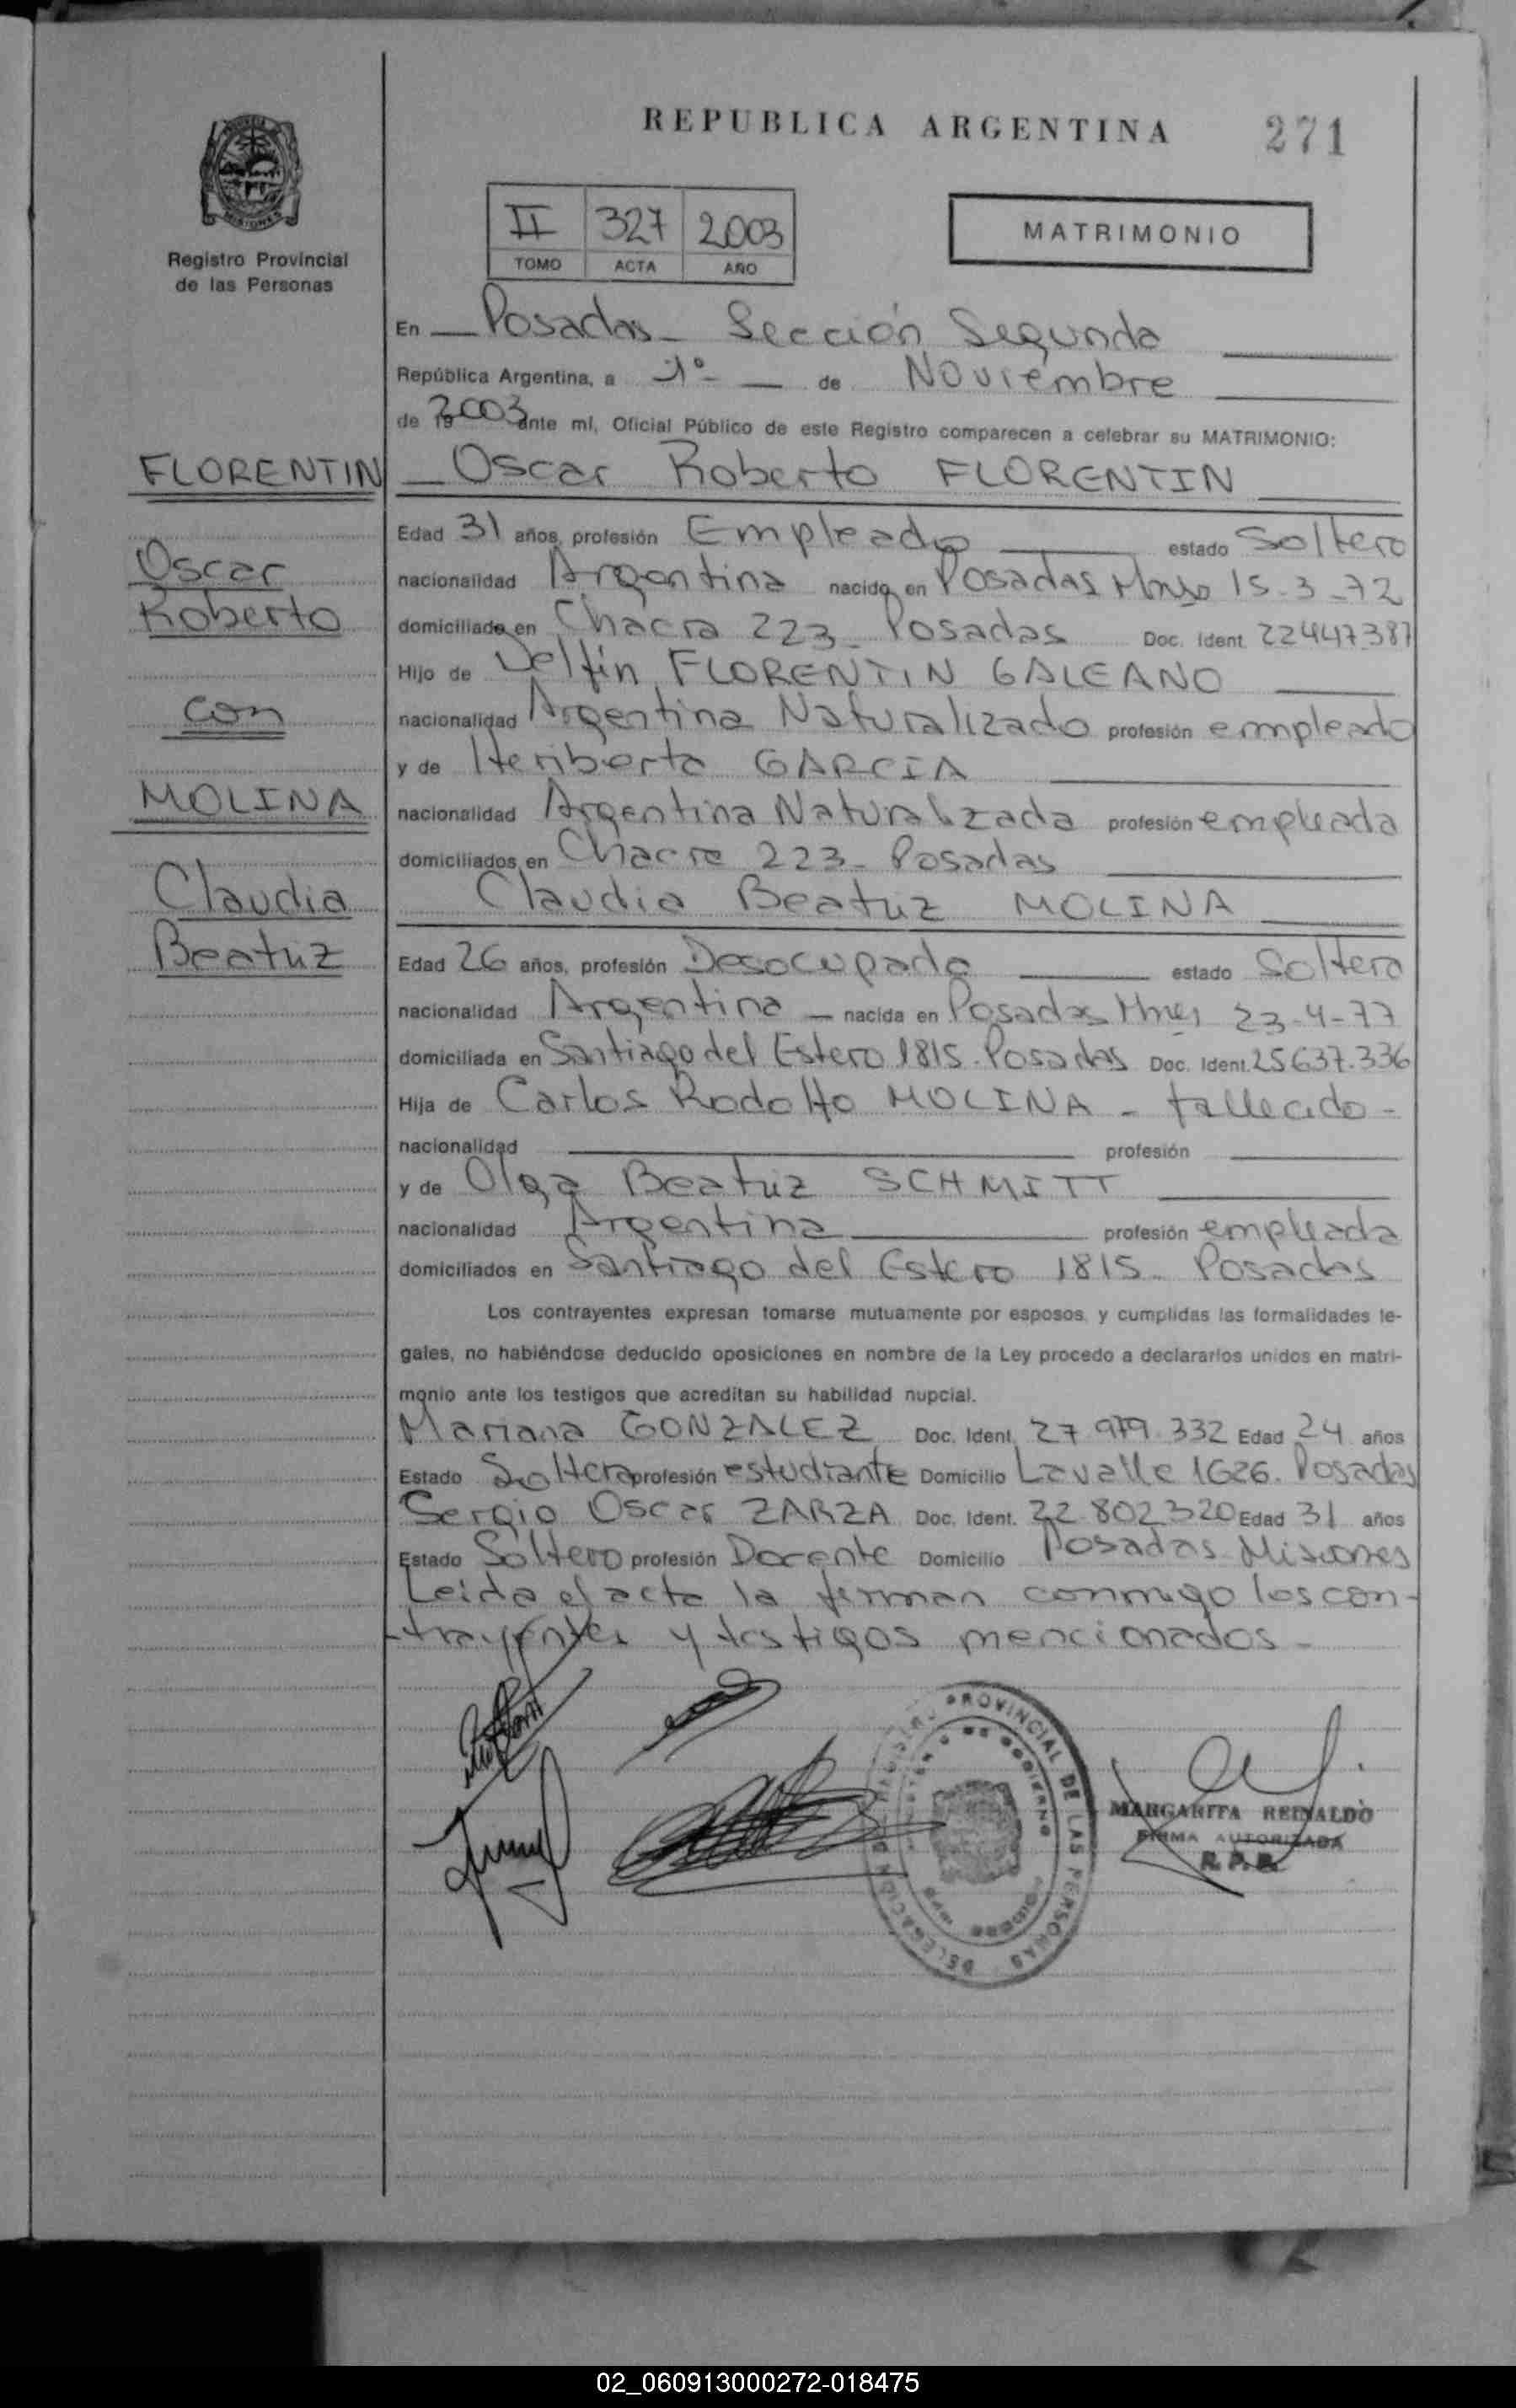 REPUBLICA ARGENTINA 271
II 327 2003
TOMO ACTA AÑO
MATRIMONIO
Registro Provincial
de las Personas
En Posadas - Sección Segunda
República Argentina, a 1º de Noviembre
de 19 2003 ante mí, Oficial Público de este Registro comparecen a celebrar su MATRIMONIO:
FLORENTIN Oscar Roberto FLORENTIN
Edad 31 años, profesión Empleado estado Soltero
Oscar nacionalidad Argentina nacido en Posadas 15-3-72
Roberto domiciliado en Chacra 223 - Posadas Doc. Ident. 22.447.387
Hijo de Delfín FLORENTIN GALEANO
con nacionalidad Argentina Naturalizado profesión empleado
y de Heriberta GARCIA
MOLINA nacionalidad Argentina Naturalizada profesión empleada
domiciliados en Chacra 223 - Posadas
Claudia Claudia Beatriz MOLINA
Beatriz Edad 26 años, profesión Desocupada estado Soltera
nacionalidad Argentina - nacida en Posadas Mnes 23-4-77
domiciliada en Santiago del Estero 1815 - Posadas Doc. Ident. 25.637.336
Hija de Carlos Rodolfo MOLINA - fallecido -
nacionalidad profesión
y de Olga Beatriz SCHMITT
nacionalidad Argentina profesión empleada
domiciliados en Santiago del Estero 1815 - Posadas
Los contrayentes expresan tomarse mutuamente por esposos, y cumplidas las formalidades le-
gales, no habiéndose deducido oposiciones en nombre de la Ley procedo a declararlos unidos en matri-
monio ante los testigos que acreditan su habilidad nupcial.
Mariana GONZALEZ Doc. Ident. 27.979.332 Edad 24 años
Estado Soltera profesión estudiante Domicilio Lavalle 1626. Posadas
Sergio Oscar ZARZA Doc. Ident. 22.802.320 Edad 31 años
Estado Soltero profesión Docente Domicilio Posadas Misiones
Leida el acta la firman conmigo los con-
trayentes y testigos mencionados -
PROVINCIAL DE LAS PERSONAS
DELEGACION
MARGARITA REINALDO
FIRMA AUTORIZADA
R. P. P.
02_060913000272-018475